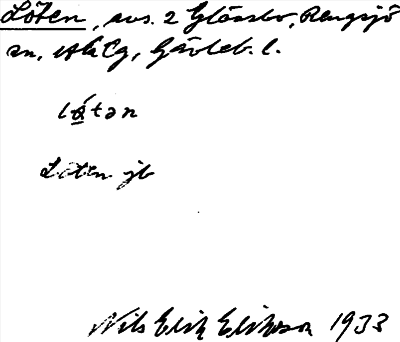 Löten, avs. 2 Glösbo, Rengsjö
sn, Gävleb. l.
lǿtən
Löten jb
Nils Erik Eriksson 1933